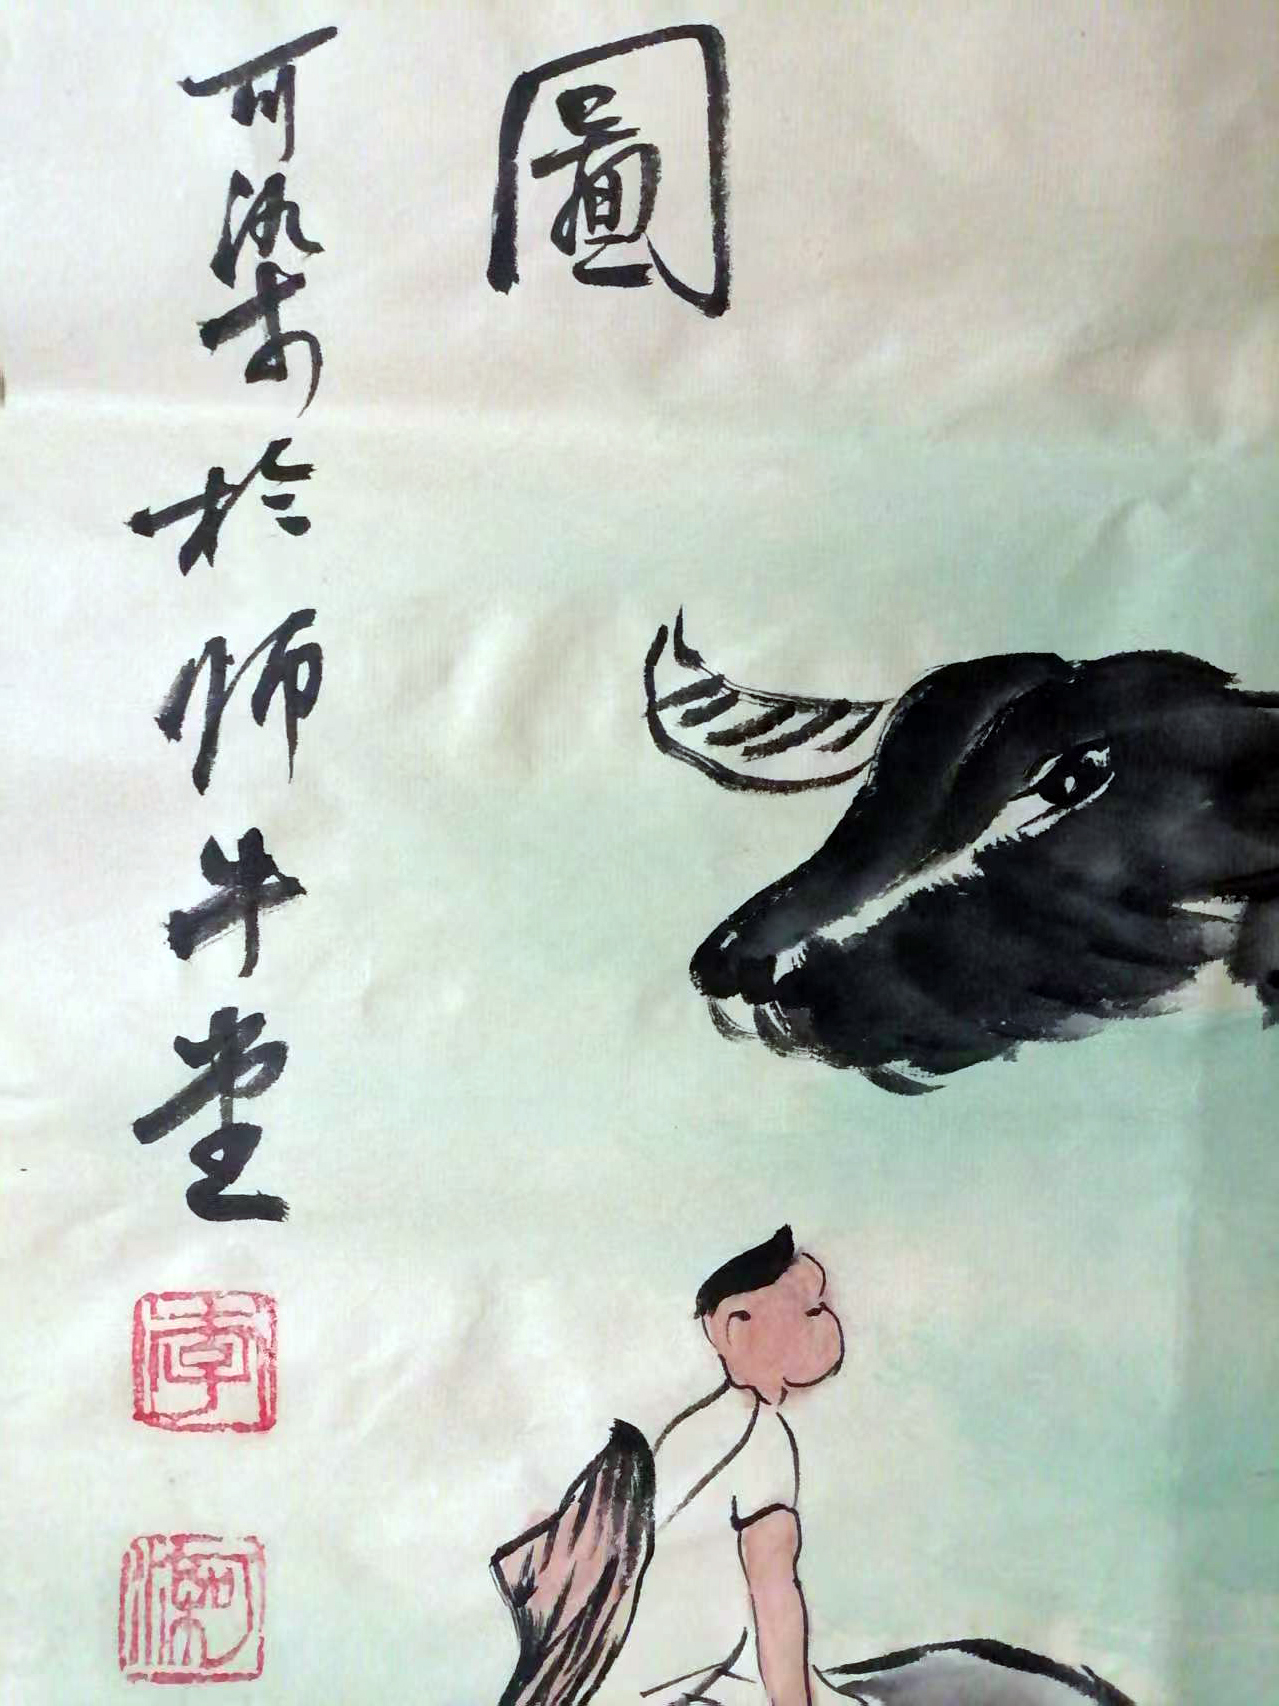 圖
可染于於师牛堂
李
可染